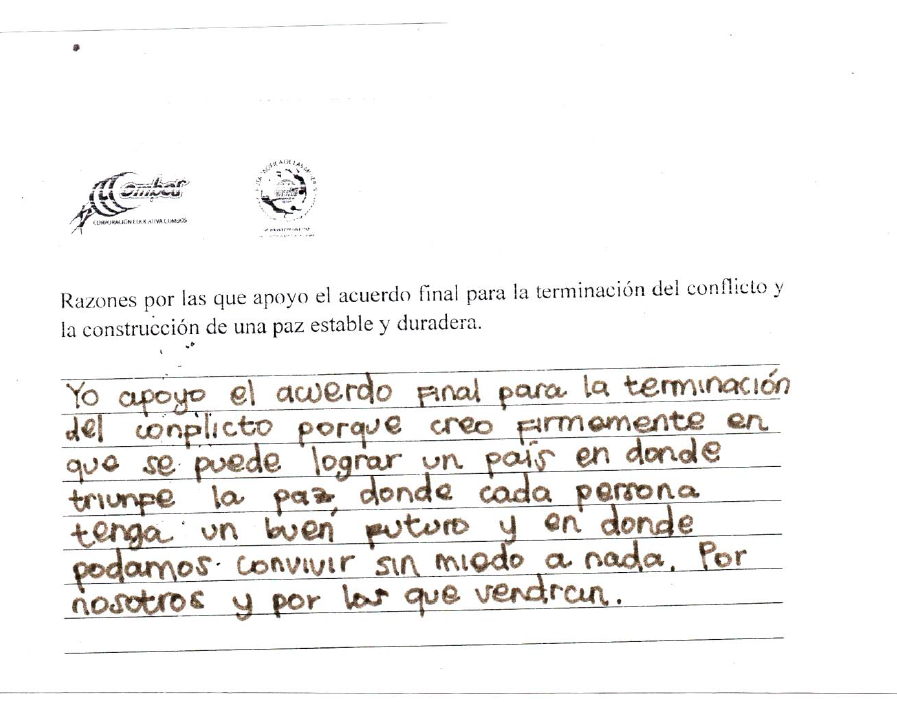 Combos
CORPORACIÓN EDUCATIVA COMBOS
Razones por las que apoyo el acuerdo final para la terminación del conflicto y
la construcción de una paz estable y duradera.
Yo apoyo el acuerdo final para la terminación
del conflicto porque creo firmemente en
que se puede lograr un país en donde
triunfe la paz, donde cada persona
tenga un buen futuro y en donde
podamos convivir sin miedo a nada. Por
nosotros y por los que vendran.